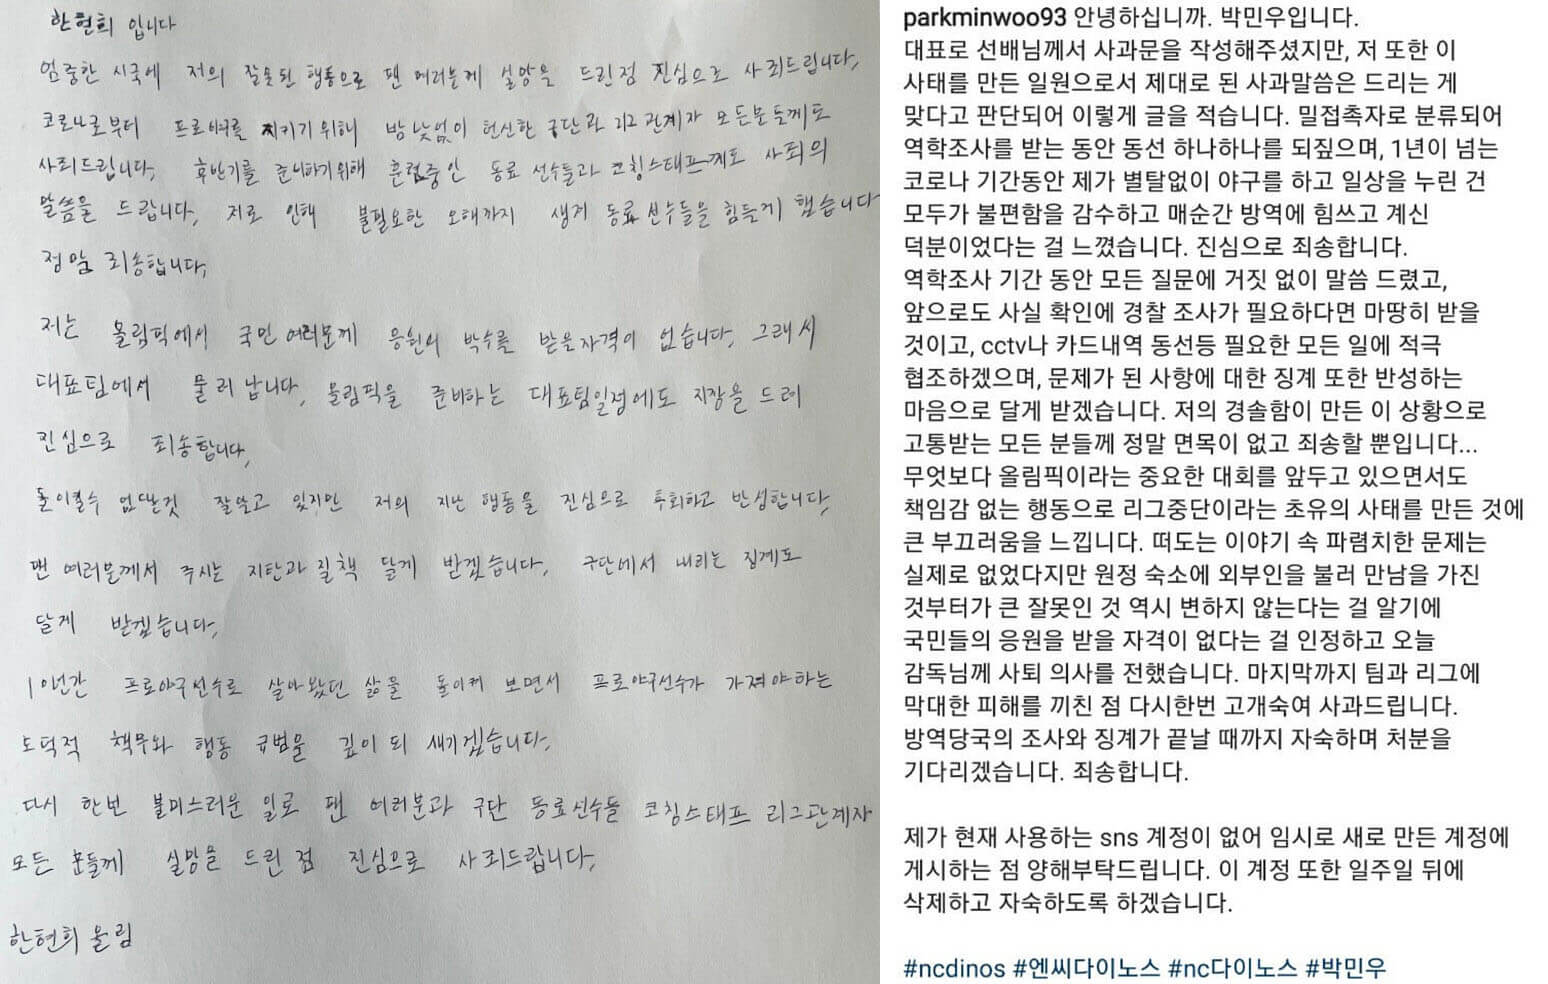 한현희 입니다
엄중한 시국에 저의 잘못된 행동으로 팬 여러분께 실망을 드린점 진심으로 사죄드립니다.
코로나로부터 프로야구를 지키기 위해 밤낮없이 헌신한 구단과 리그 관계자 모든분들께도
사죄드립니다. 후반기를 준비하기위해 훈련중인 동료 선수들과 코칭스태프께도 사죄의
말씀을 드립니다. 저로 인해 불필요한 오해까지 생겨 동료 선수들을 힘들게 했습니다
정말 죄송합니다.
저는 올림픽에서 국민 여러분께 응원의 박수를 받을자격이 없습니다. 그래서
대표팀에서 물러납니다. 올림픽을 준비하는 대표팀일정에도 지장을 드려
진심으로 죄송합니다.
돌이킬수 없다는것 잘알고 있지만 저의 지난 행동을 진심으로 후회하고 반성합니다.
팬 여러분께서 주시는 지탄과 질책 달게 받겠습니다. 구단에서 내리는 징계도
달게 받겠습니다.
10년간 프로야구선수로 살아왔던 삶을 돌이켜 보면서 프로야구선수가 가져야하는
도덕적 책무와 행동 규범을 깊이 되 새기겠습니다.
다시 한번 불미스러운 일로 팬 여러분과 구단 동료선수들 코칭스태프 리그관계자
모든 분들께 실망을 드린 점 진심으로 사죄드립니다.
한현희 올림
parkminwoo93 안녕하십니까. 박민우입니다.
대표로 선배님께서 사과문을 작성해주셨지만, 저 또한 이
사태를 만든 일원으로서 제대로 된 사과말씀은 드리는 게
맞다고 판단되어 이렇게 글을 적습니다. 밀접촉자로 분류되어
역학조사를 받는 동안 동선 하나하나를 되짚으며, 1년이 넘는
코로나 기간동안 제가 별탈없이 야구를 하고 일상을 누린 건
모두가 불편함을 감수하고 매순간 방역에 힘쓰고 계신
덕분이었다는 걸 느꼈습니다. 진심으로 죄송합니다.
역학조사 기간 동안 모든 질문에 거짓 없이 말씀 드렸고,
앞으로도 사실 확인에 경찰 조사가 필요하다면 마땅히 받을
것이고, cctv나 카드내역 동선등 필요한 모든 일에 적극
협조하겠으며, 문제가 된 사항에 대한 징계 또한 반성하는
마음으로 달게 받겠습니다. 저의 경솔함이 만든 이 상황으로
고통받는 모든 분들께 정말 면목이 없고 죄송할 뿐입니다...
무엇보다 올림픽이라는 중요한 대회를 앞두고 있으면서도
책임감 없는 행동으로 리그중단이라는 초유의 사태를 만든 것에
큰 부끄러움을 느낍니다. 떠도는 이야기 속 파렴치한 문제는
실제로 없었다지만 원정 숙소에 외부인을 불러 만남을 가진
것부터가 큰 잘못인 것 역시 변하지 않는다는 걸 알기에
국민들의 응원을 받을 자격이 없다는 걸 인정하고 오늘
감독님께 사퇴 의사를 전했습니다. 마지막까지 팀과 리그에
막대한 피해를 끼친 점 다시한번 고개숙여 사과드립니다.
방역당국의 조사와 징계가 끝날 때까지 자숙하며 처분을
기다리겠습니다. 죄송합니다.
제가 현재 사용하는 sns 계정이 없어 임시로 새로 만든 계정에
게시하는 점 양해부탁드립니다. 이 계정 또한 일주일 뒤에
삭제하고 자숙하도록 하겠습니다.
#ncdinos #엔씨다이노스 #nc다이노스 #박민우